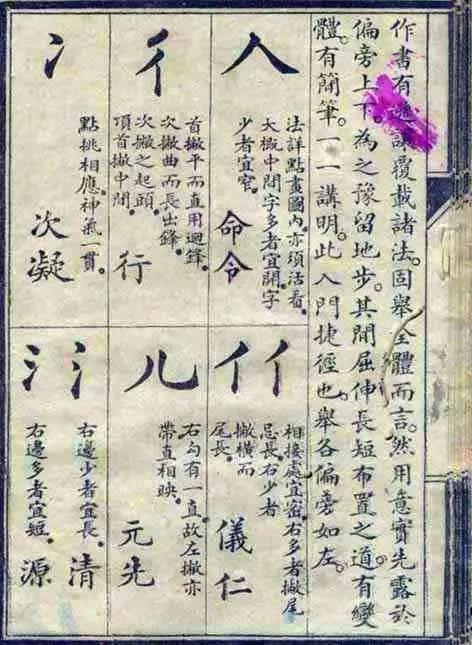 作書有讓覆載諸法。固舉全體而言。然用意實先露於
偏旁上下。為之豫留地步。其間屈伸長短布置之道。有變
體。有簡筆。一一講明。此入門捷徑也。舉各偏旁如左。
人
法詳點畫圖內。亦須活看。
大概中間字多者宜開。字
少者宜窄。
命令
彳
首撇平而直用迴鋒。
次撇曲而長出鋒。
次撇之起頭。
頂首撇中間。
行
冫
點挑相應。神氣一貫。
次凝
亻亻
相接處宜密。右多者撇尾
忌長。右少者
撇橫而
尾長。
儀仁
儿
右勾有一直。故左撇亦
帶直相映。
元先
氵氵
右邊少者宜長。清
右邊多者宜短。源